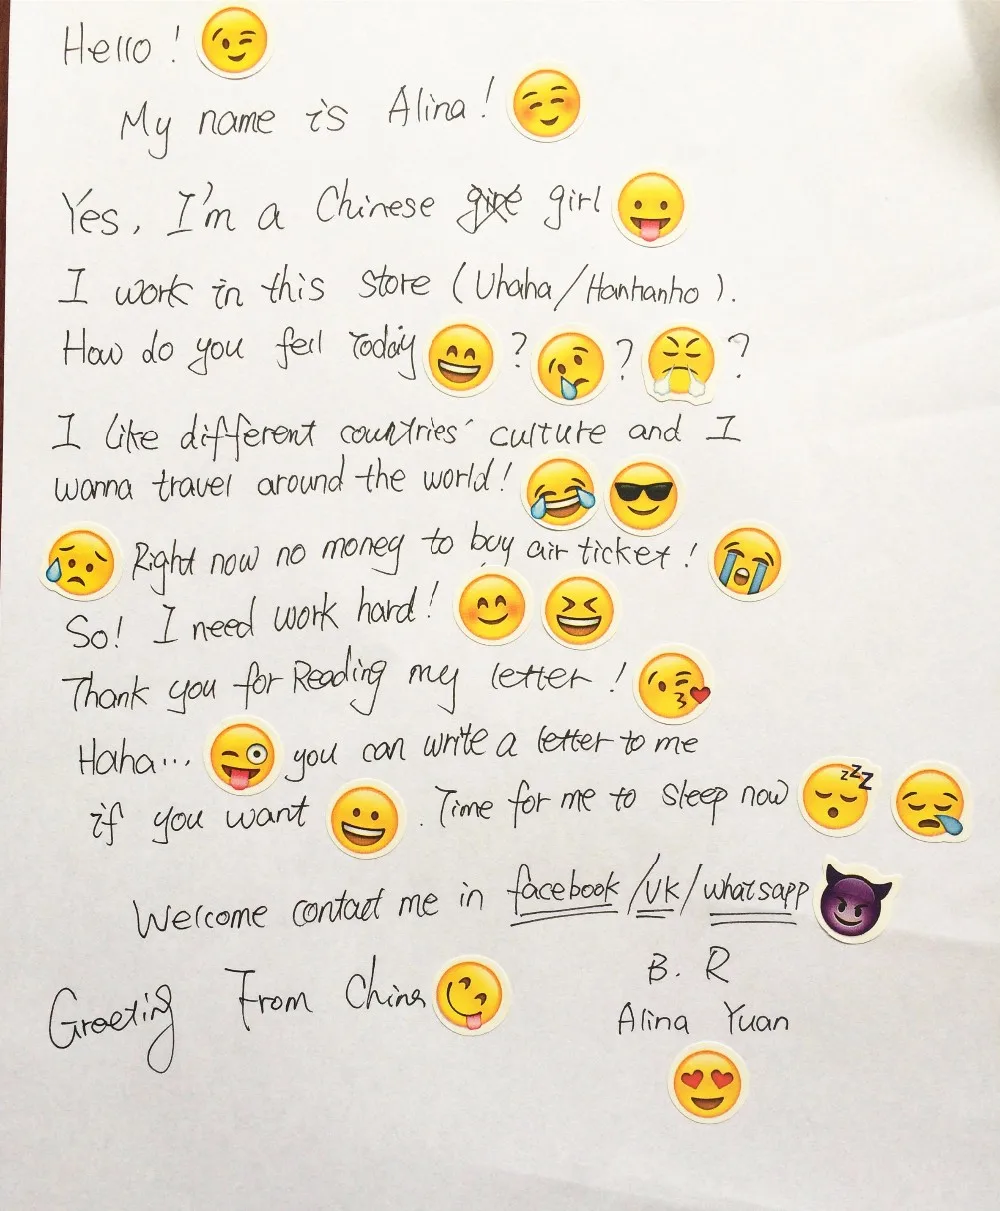 Hello! 😉
My name is Alina! ☺️
Yes, I'm a Chinese girl 😛
I work in this store (Uhaha/Hanhanho).
How do you feel Today 😄 ? 😢 ? 😤 ?
I like different countries' culture and I
wanna travel around the world! 😂 😎
😥 Right now no money to buy air ticket! 😭
So! I need work hard! 😊 😆
Thank you for Reading my letter! 😘
Haha... 😜 you can write a letter to me
if you want 😀. Time for me to sleep now 😴 😪
Welcome contact me in facebook/VK/whatsapp 😈
B. R
Greeting From China 😋
Alina Yuan
😍